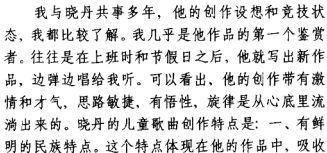 我与晓丹共事多年，他的创作设想和竞技状
态，我都比较了解。我几乎是他作品的第一个鉴赏
者。往往是在上班时和节假日之后，他就写出新作
品，边弹边唱给我听。可以看出，他的创作带有激
情和才气，思路敏捷，有悟性，旋律是从心底里流
淌出来的。晓丹的儿童歌曲创作特点是：一、有鲜
明的民族特点。这个特点体现在他的作品中，吸收